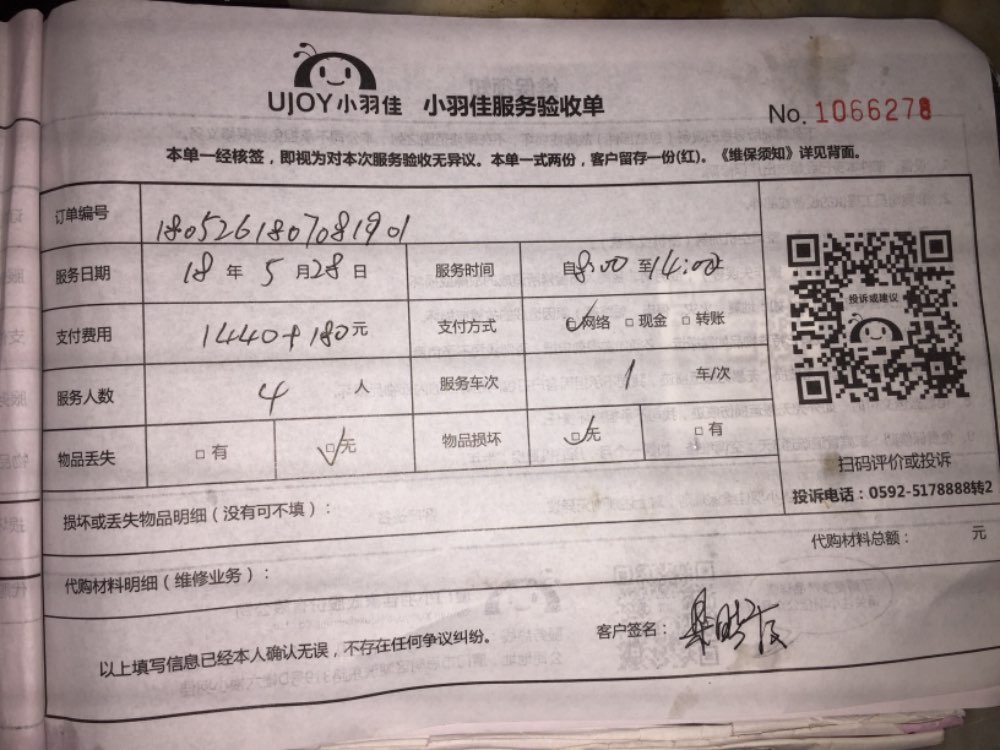 UJOY小羽佳 小羽佳服务验收单
No. 1066278
本单一经核签，即视为对本次服务验收无异议。本单一式两份，客户留存一份(红)。《维保须知》详见背面。
订单编号 1805261807081901
服务日期 18 年 5 月 28 日 服务时间 自8:00 至14:00
支付费用 1440+180元 支付方式 □网络 □现金 □转账
服务人数 4 人 服务车次 1 车/次
物品丢失 □有 □无 物品损坏 □无 □有
投诉或建议
扫码评价或投诉
投诉电话：0592-5178888转2
损坏或丢失物品明细（没有可不填）：
代购材料总额： 元
代购材料明细（维修业务）：
客户签名：
以上填写信息已经本人确认无误，不存在任何争议纠纷。